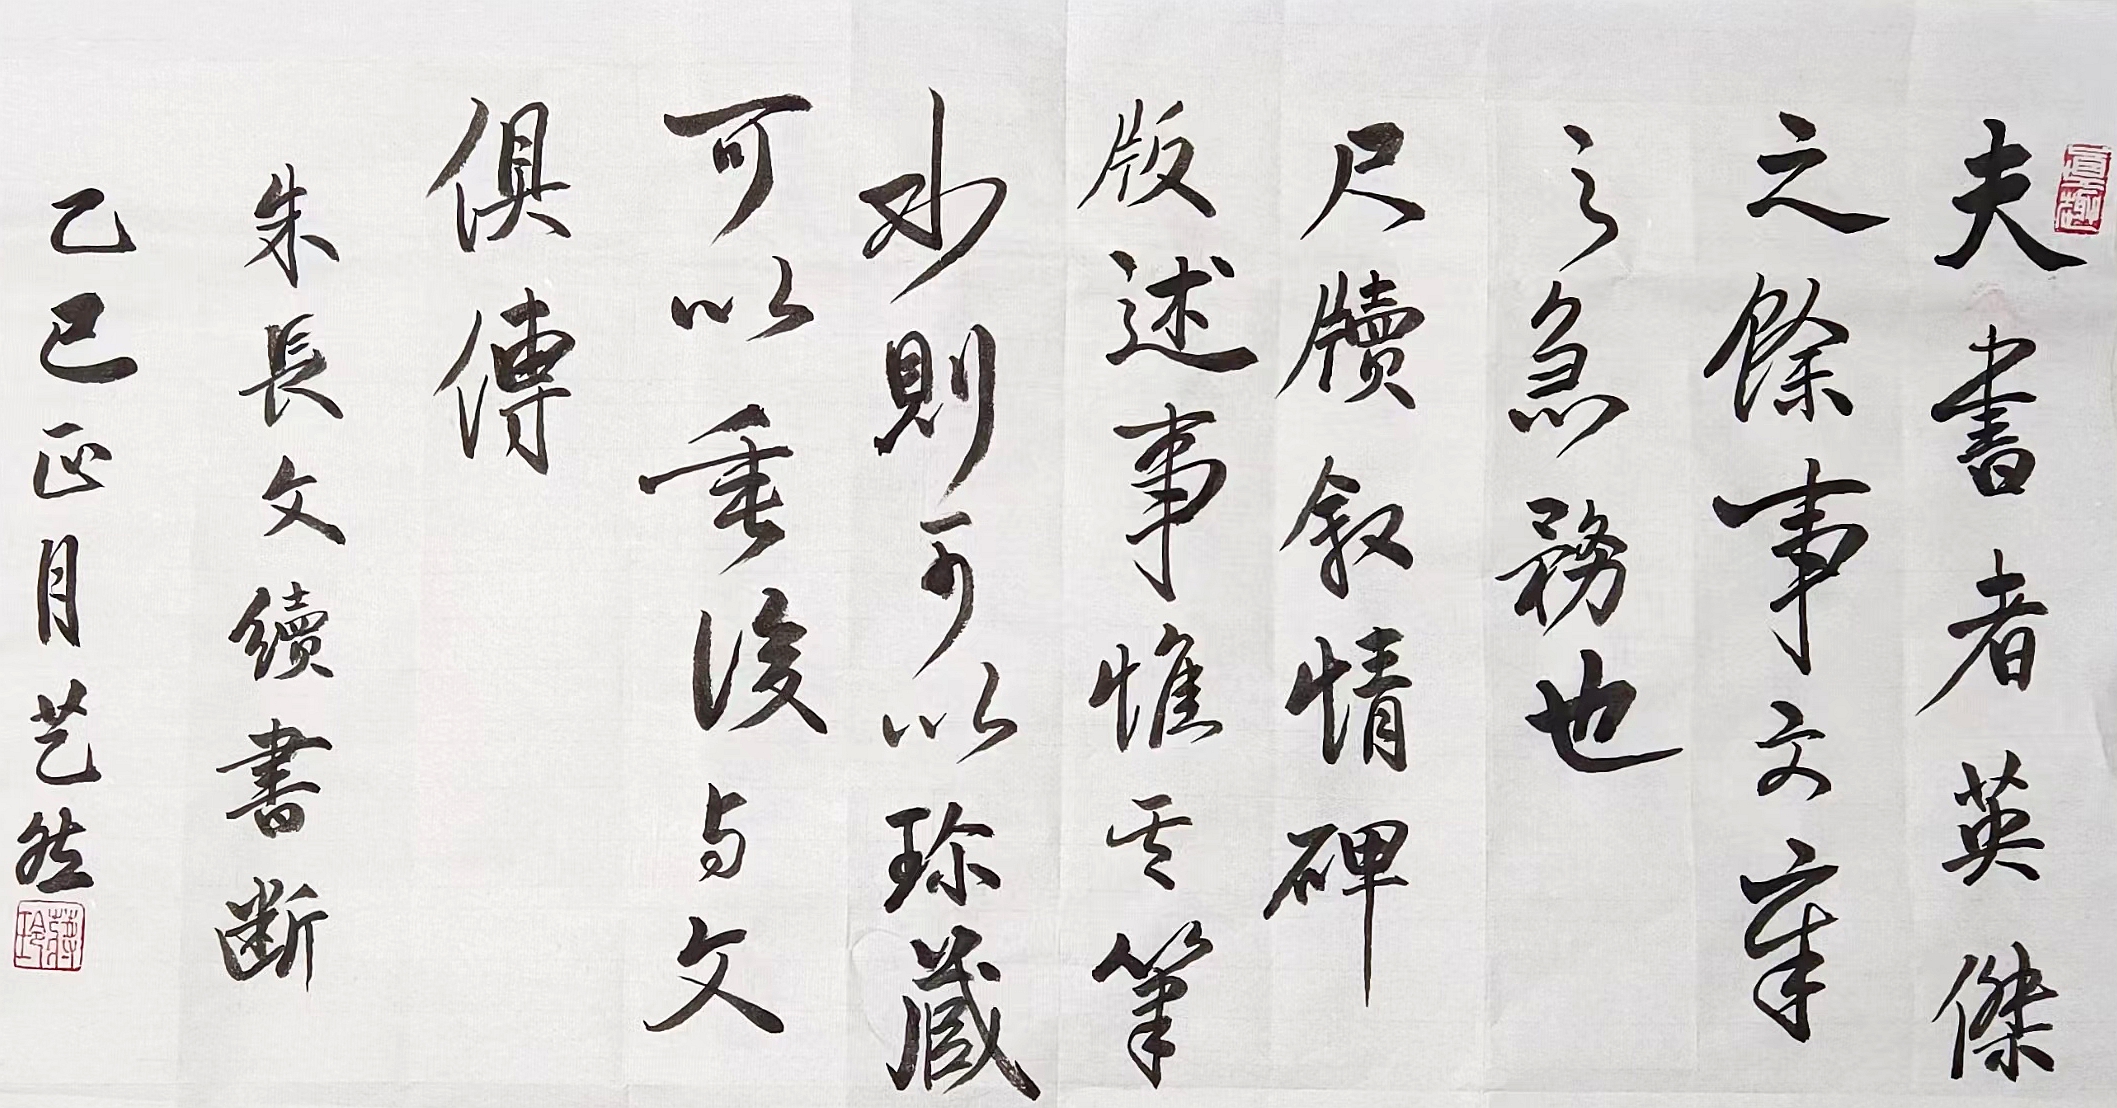 夫書者英傑
之餘事文章
之急務也
尺牘叙情碑
版述事惟其筆
妙則可以珍藏
可以垂後与文
俱傳
朱長文續書断
乙巳正月艺然
蔣玲